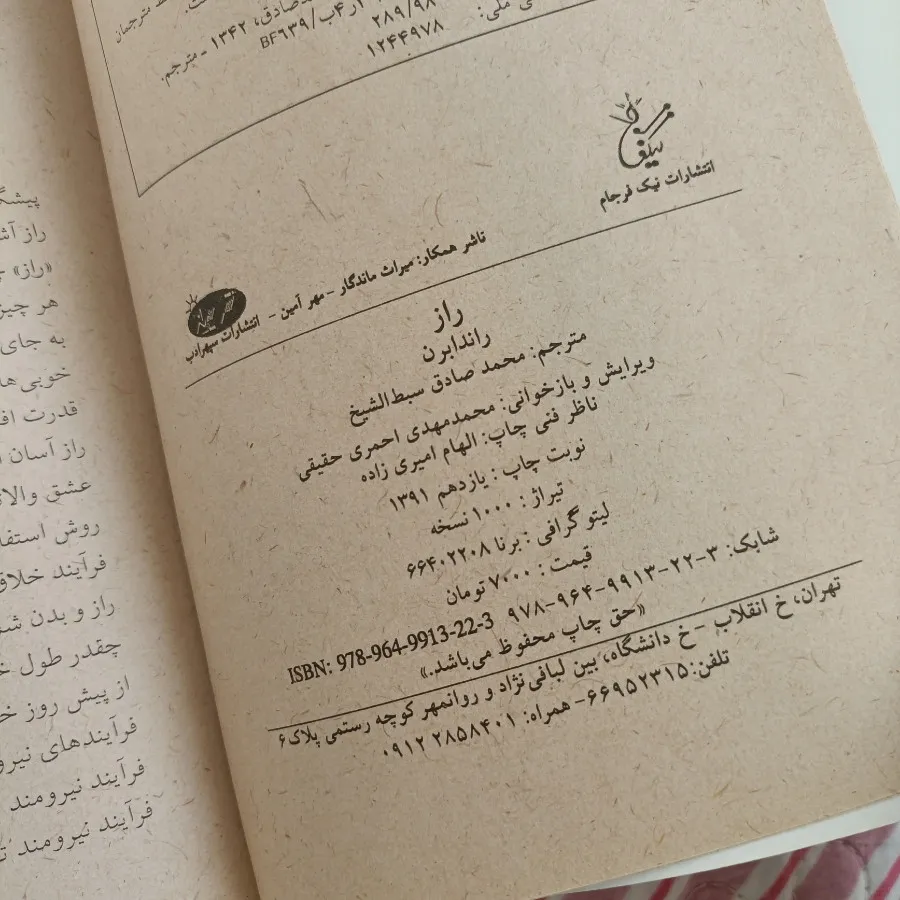 مترجمان
صادق، ۱۳۴۲ - مترجم.
BF۶۳۹/ب۴ر۲
۲۸۹/۹۸
ملی:
۱۲۴۴۹۷۸
انتشارات نیک فرجام
ناشر همکار: میراث ماندگار - مهر آمین - انتشارات سپهرادب
راز
راندابرن
مترجم: محمد صادق سبط‌الشیخ
ویرایش و بازخوانی: محمدمهدی احمری حقیقی
ناظر فنی چاپ: الهام امیری زاده
نوبت چاپ : یازدهم ۱۳۹۱
تیراژ : ۱۰۰۰ نسخه
لیتو گرافی : برنا ۶۶۴۰۲۲۰۸
قیمت : ۷۰۰۰ تومان
شابک: ۳-۲۲-۹۹۱۳-۹۶۴-۹۷۸ ISBN: 978-964-9913-22-3
«حق چاپ محفوظ می‌باشد.»
تهران، خ انقلاب - خ دانشگاه، بین لبافی‌نژاد و روانمهر کوچه رستمی پلاک ۶
تلفن: ۶۶۹۵۲۳۱۵- همراه: ۲۸۵۸۴۰۱ ۰۹۱۲
راز
«راز»
هر چیز
به جای
خوبی‌ها
قدرت
راز آسان
عشق
روش
فرآیند
راز و بدن
چقدر طول
از پیش روز
فرآیندهای
فرآیند نیرومند
فرآیند نیرومند